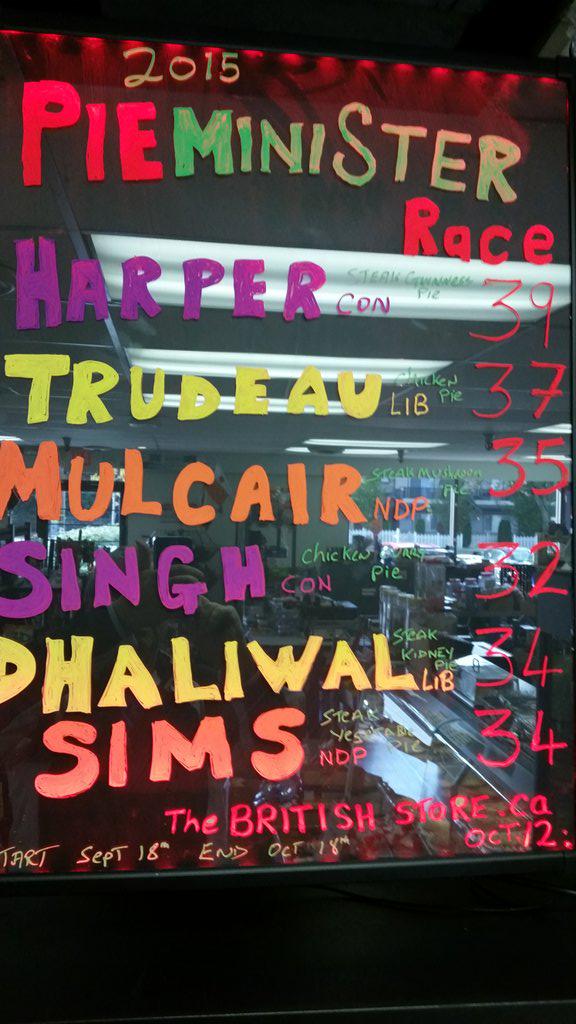 2015
PIEMINISTER
Race
HARPER CON STEAK GUINNESS Pie 39
TRUDEAU LIB CHICKEN Pie 37
MULCAIR NDP STEAK MUSHROOM Pie 35
SINGH CON Chicken CURRY Pie 32
DHALIWAL LIB STEAK KIDNEY PIE 34
SIMS NDP STEAK Pie 34
The BRITISH STORE.ca
OCT/12:
TART SEPT 18th END OCT 18th